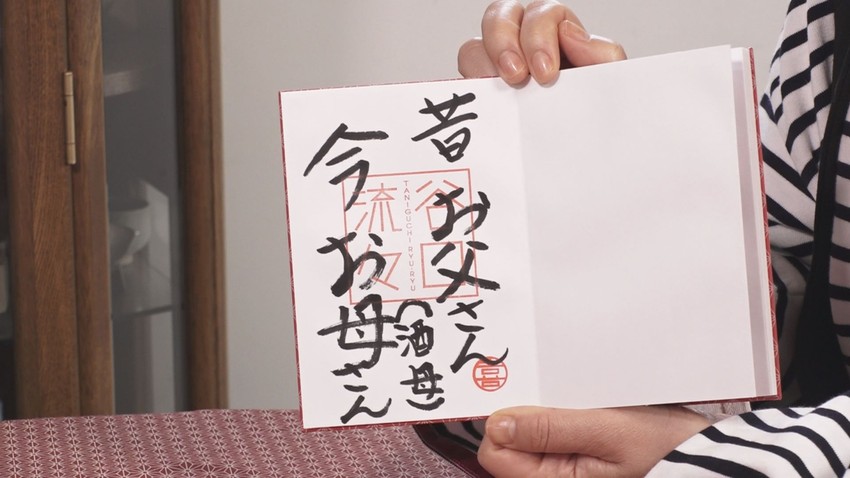 昔
お父さん
(酒母)
今
お母さん
谷口
流々
TANIGUCHI RYU-RYU